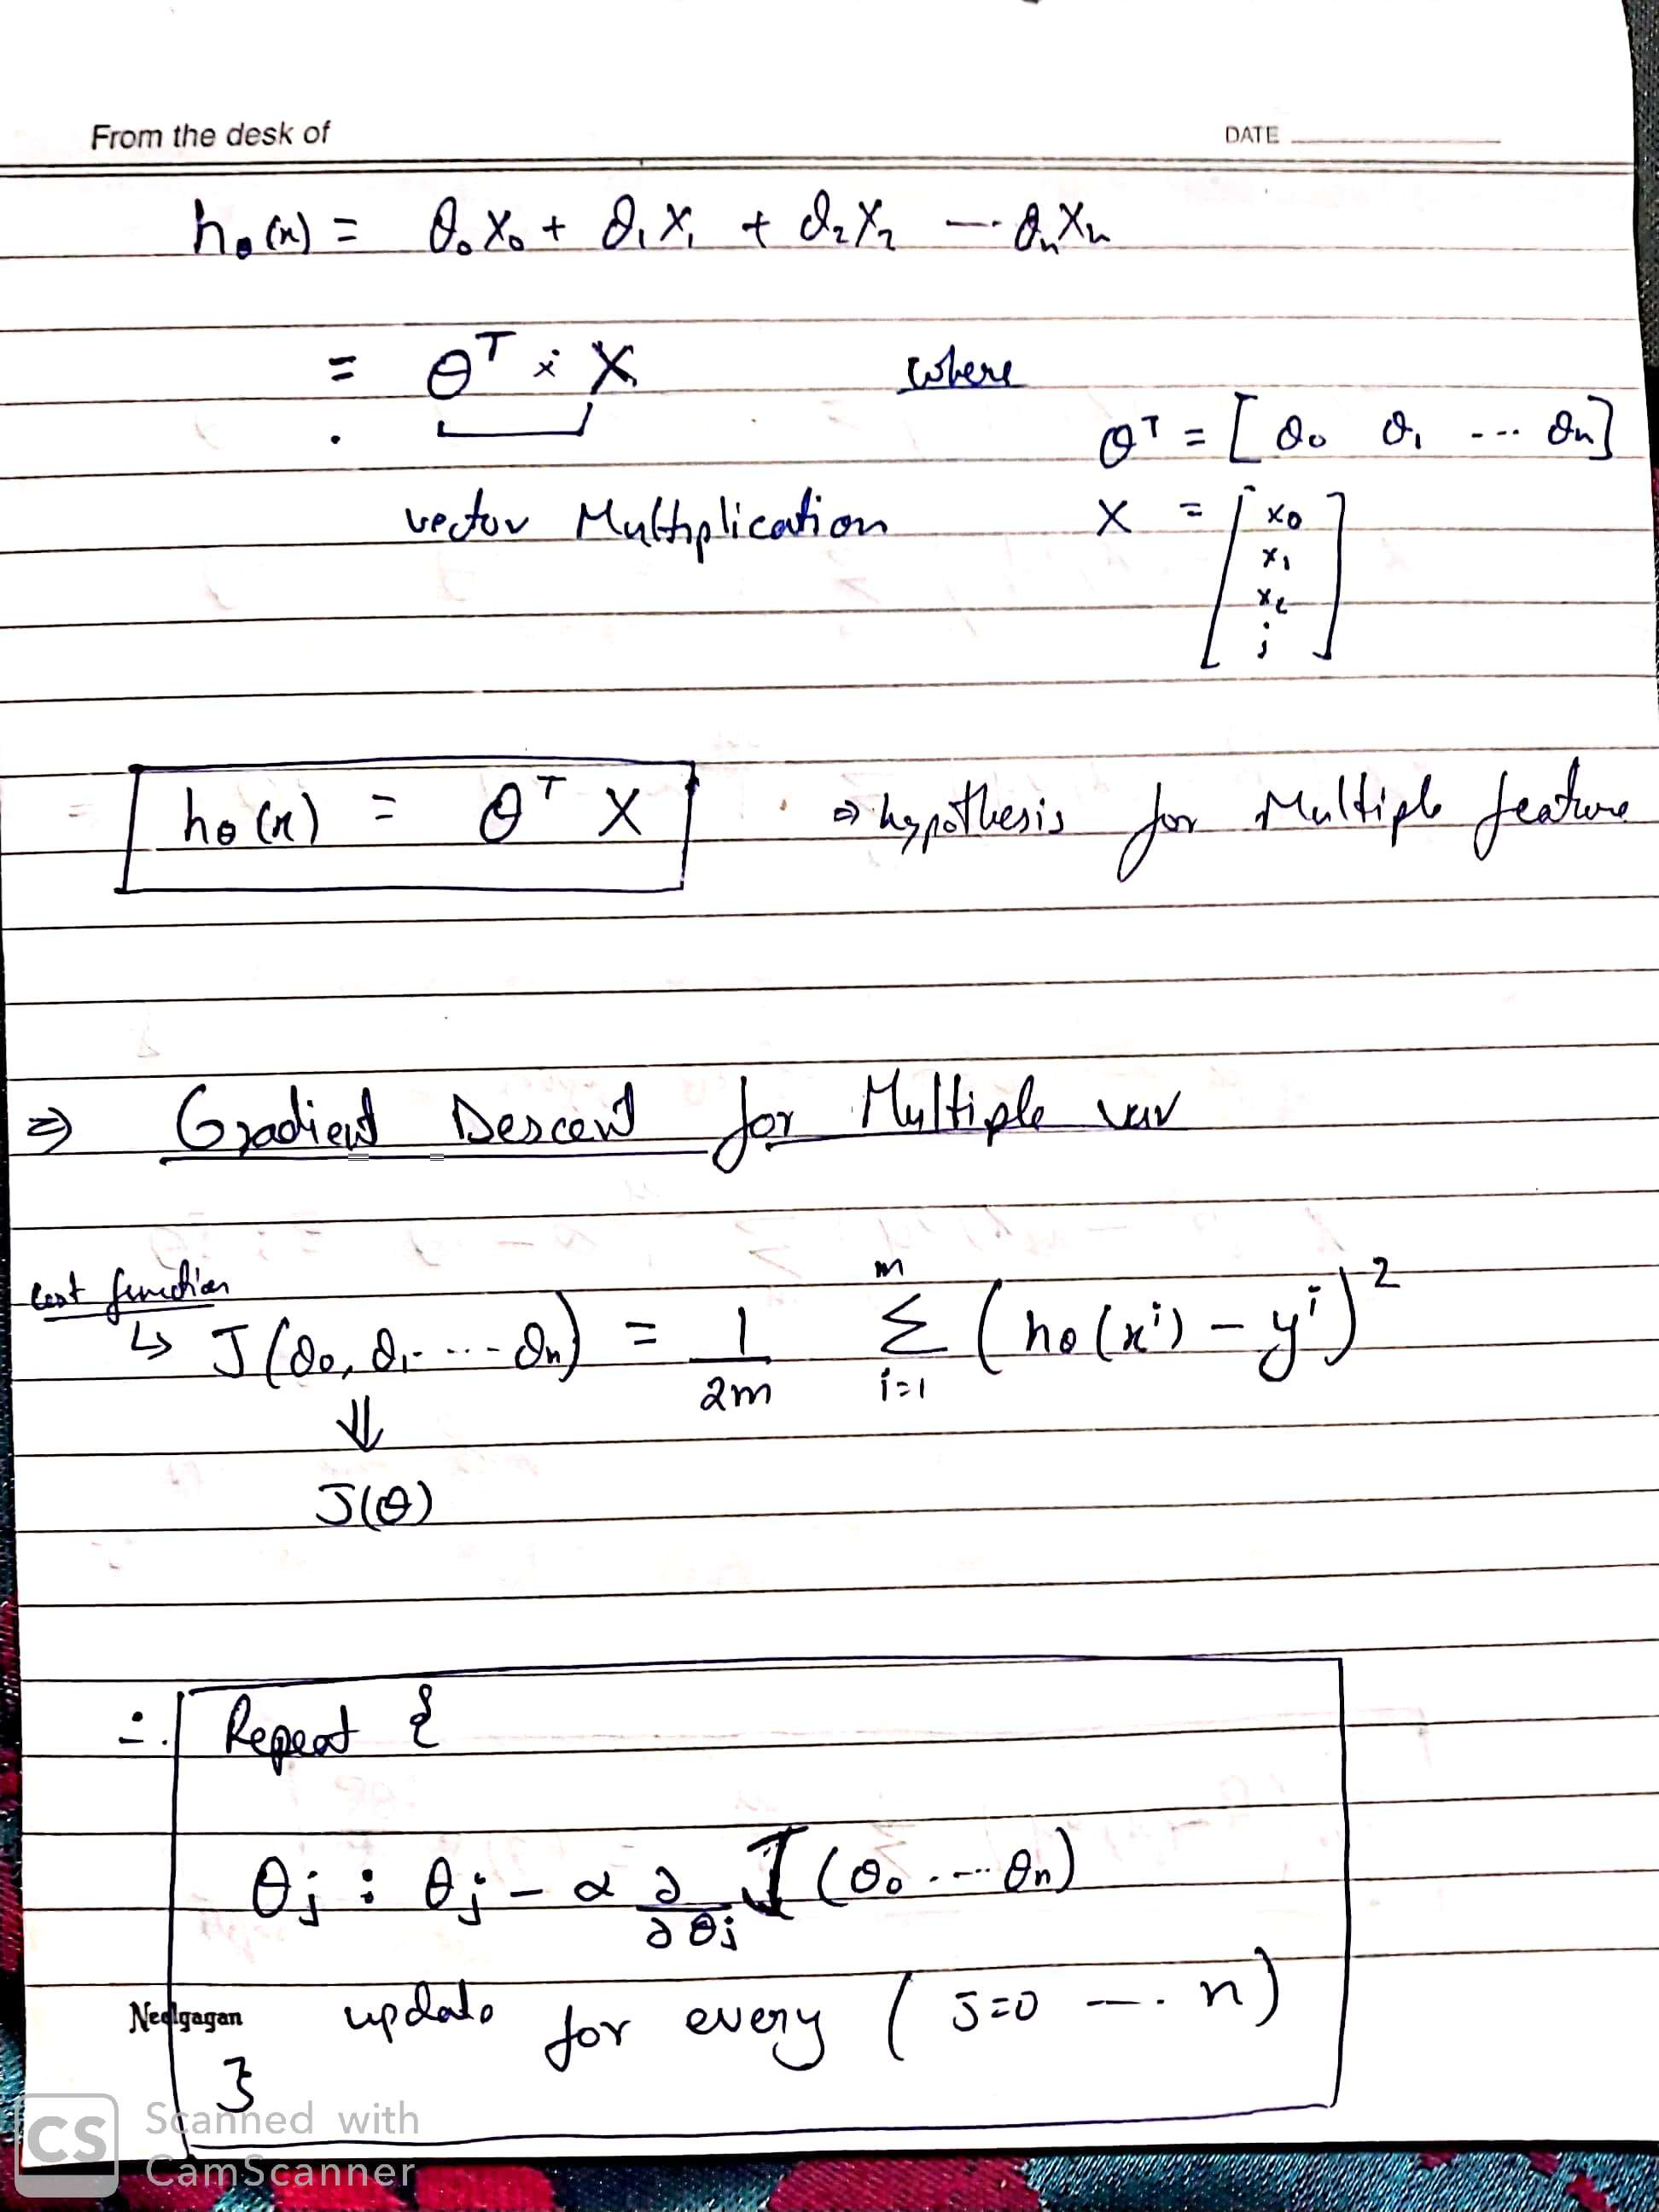 From the desk of DATE
hθ(x) = θ₀X₀ + θ₁X₁ + θ₂X₂ --- θₙXₙ
= θᵀ × X where
θᵀ = [θ₀ θ₁ --- θₙ]
vector Multiplication X = [x₀
x₁
x₂
⋮]
hθ(x) = θᵀ X ⇒ hypothesis for Multiple feature
⇒ Gradient Descent for Multiple var
cost function
↳ J(θ₀, θ₁ ---- θₙ) = 1/2m Σ i=1 m (hθ(xⁱ) - yⁱ)²
⇓
J(θ)
∴ Repeat {
θj : θj - α ∂/∂θj J(θ₀ ---- θn)
update for every (J=0 --- n)
Neelgagan
}
CS Scanned with
CamScanner